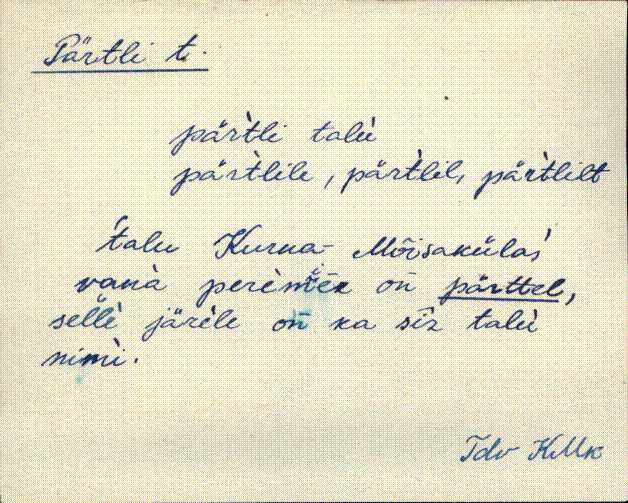 Pärtli t.
pär̀tli talù
pär̀tlile, pär̀tlil, pär̀tlilt
'talu Kurna-Mõisakülas'
vanà perèmēz on̄ pärttel,
sellè järèle on̄ ka sīz talù
nimì.
Tdv KMk